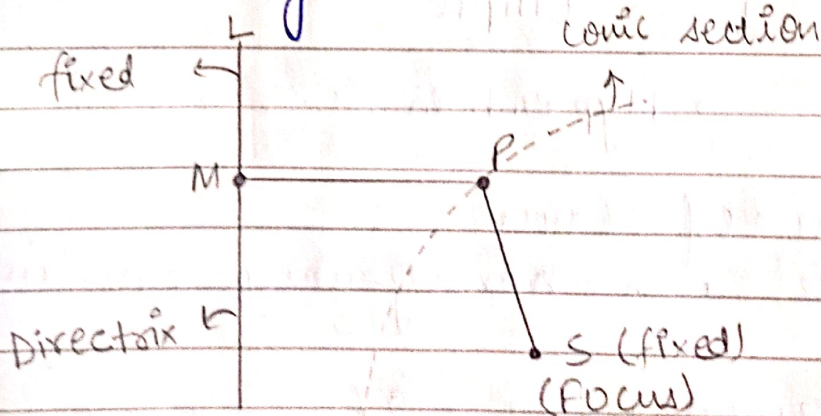 L
conic section
fixed
P
M
Directrix
S (fixed)
(Focus)